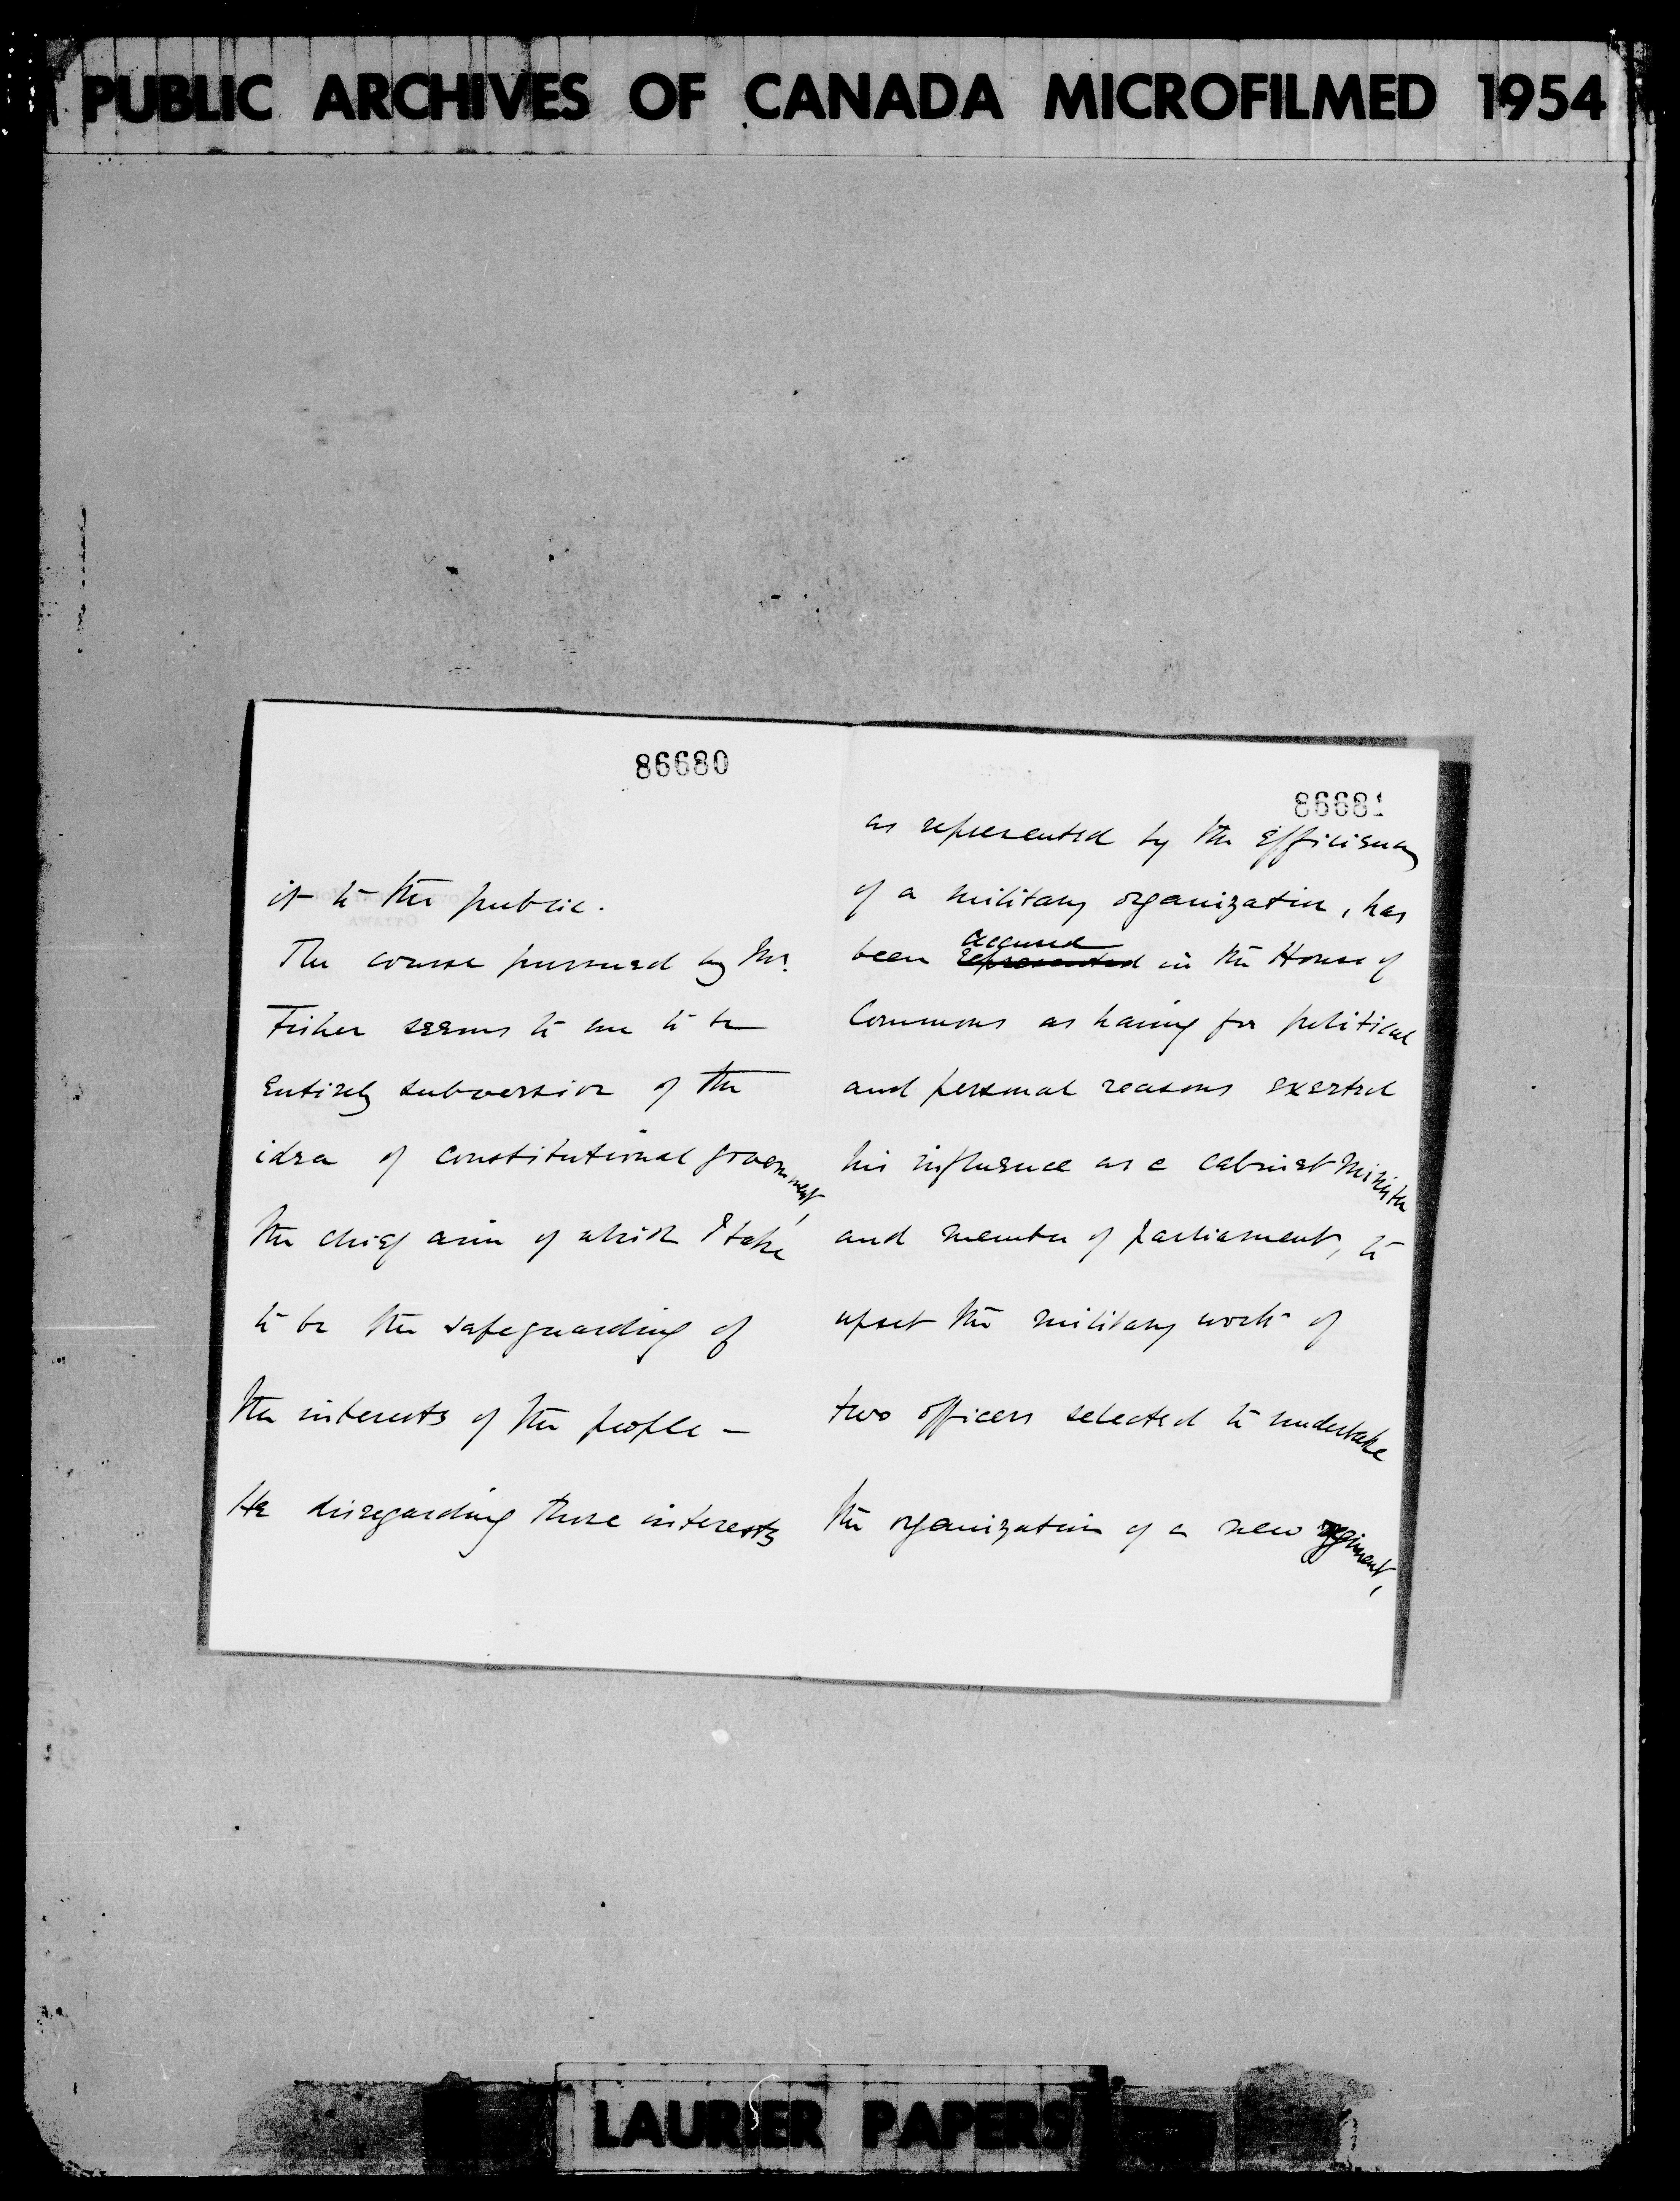 PUBLIC ARCHIVES OF CANADA MICROFILMED 1954
86680
it to the public.
The course pursued by Mr.
Fisher seems to me to be
entirely subversive of the
idea of constitutional government,
the chief aim of which I take
to be the safeguarding of
the interests of the people —
He disregarding those interests
86681
as represented by the efficiency
of a military organization, has
accused
been represented in the House of
Commons as having for political
and personal reasons exerted
his influence as a cabinet Minister
and member of parliament, to
upset the military work of
two officers selected to undertake
the organization of a new regiment,
LAURIER PAPERS